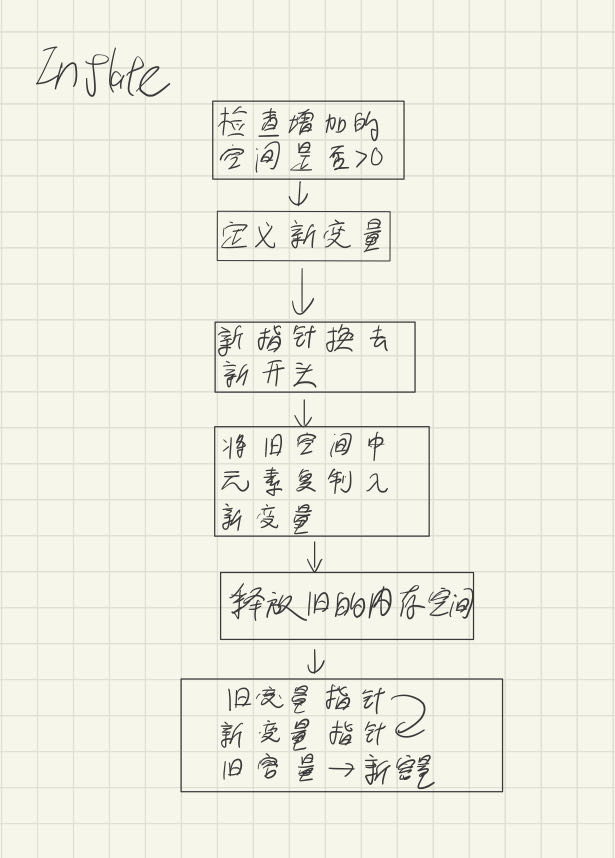 Inflate
检查增加的
空间是否>0
定义新变量
新指针换去
新开头
将旧空间中
元素复制入
新变量
释放旧的内存空间
旧变量指针
新变量指针
旧容量→新容量